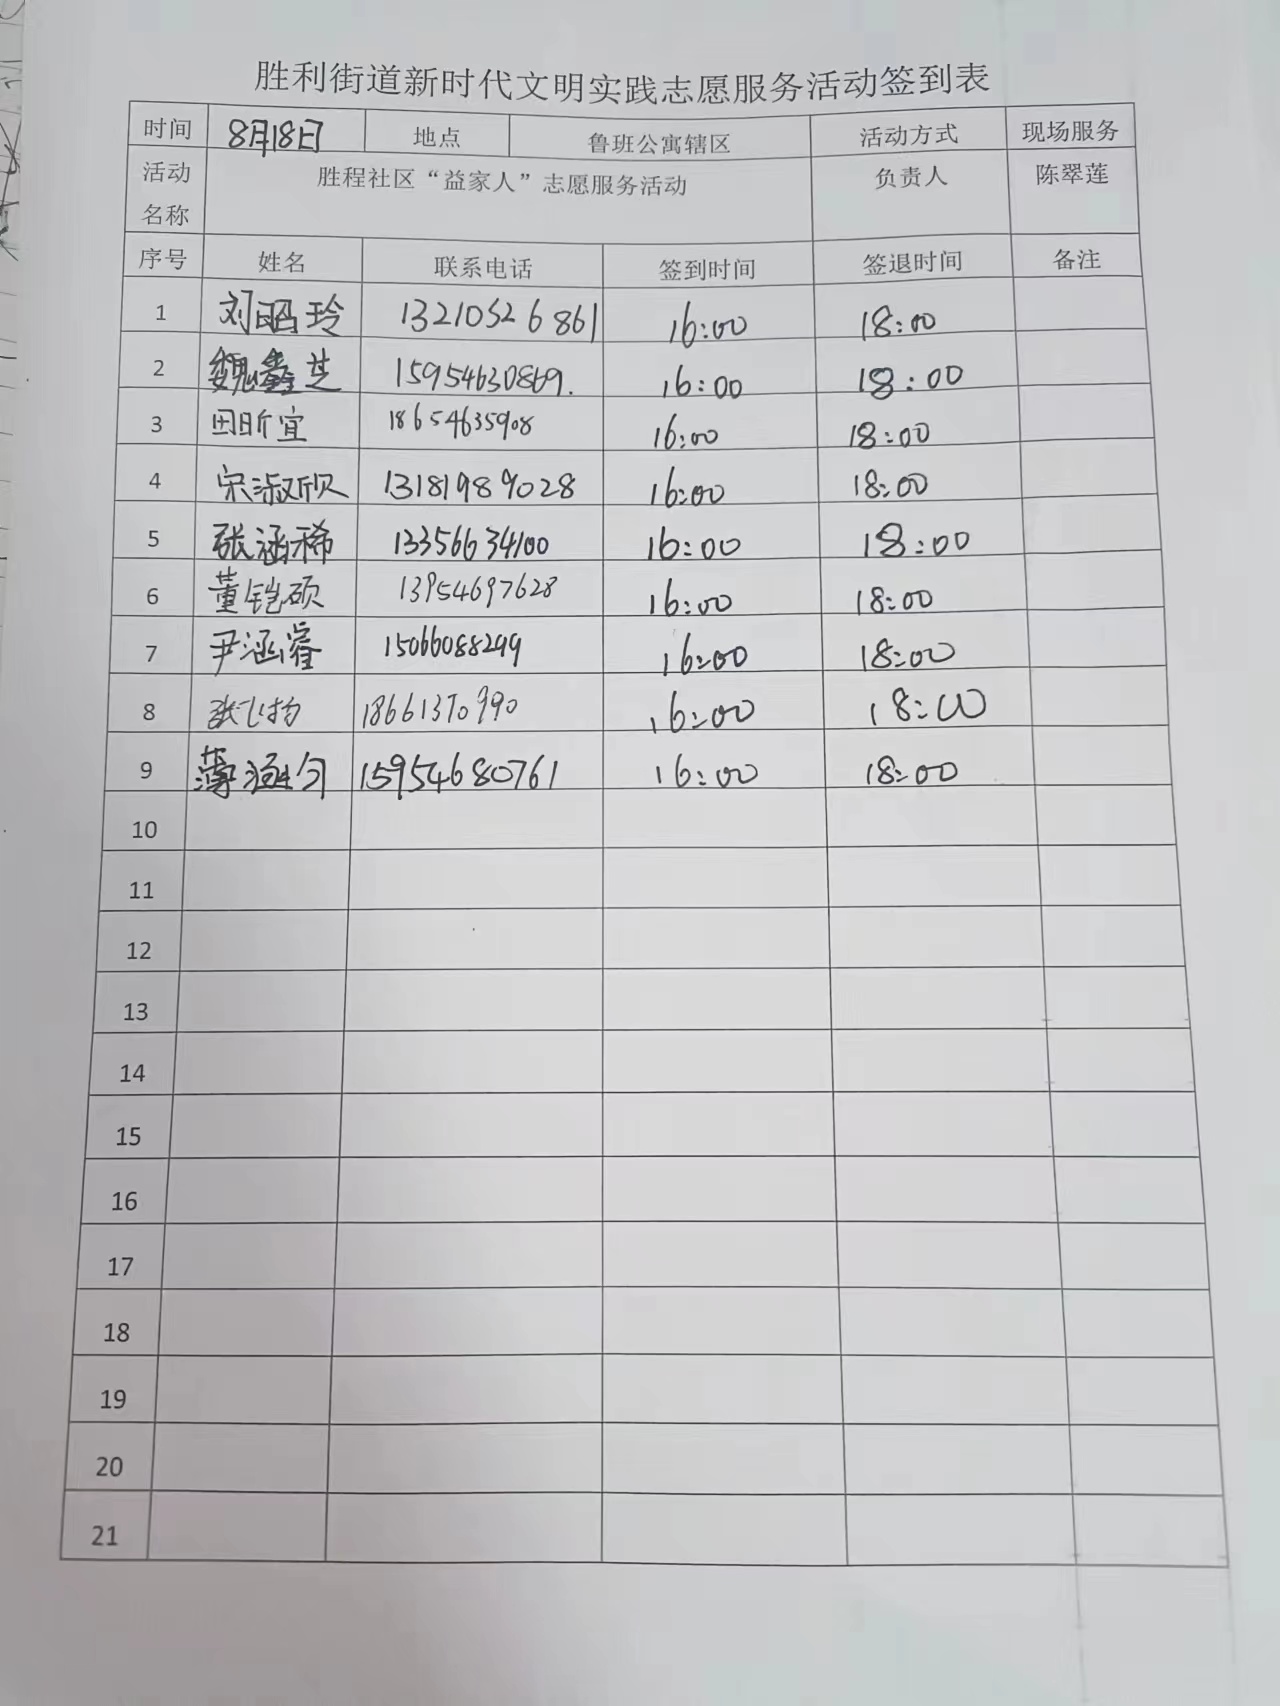 胜利街道新时代文明实践志愿服务活动签到表
时间 8月18日 地点 鲁班公寓辖区 活动方式 现场服务
活动名称 胜程社区“益家人”志愿服务活动 负责人 陈翠莲
序号 姓名 联系电话 签到时间 签退时间 备注
1 刘昭玲 13210526861 16:00 18:00
2 魏鑫芝 15954630869. 16:00 18:00
3 田昕宜 18654635908 16:00 18:00
4 宋淑欣 13181989028 16:00 18:00
5 张涵稀 13356634100 16:00 18:00
6 董铠硕 13954697628 16:00 18:00
7 尹涵睿 15066088299 16:00 18:00
8 张飞扬 18661370990 16:00 18:00
9 薄涵匀 15954680761 16:00 18:00
10
11
12
13
14
15
16
17
18
19
20
21